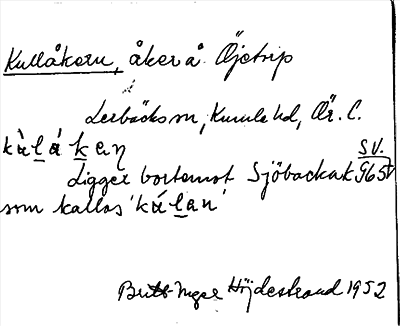 Kullåkern, åker å Öjetrip
Lerbäcks sn, Kumla hd, Ör. l.
kùlákeŋ
SV.
Ligger bortemot Sjöbackak 965
som kallas 'kúlan'
Britt-Inger Höjdestrand 1952